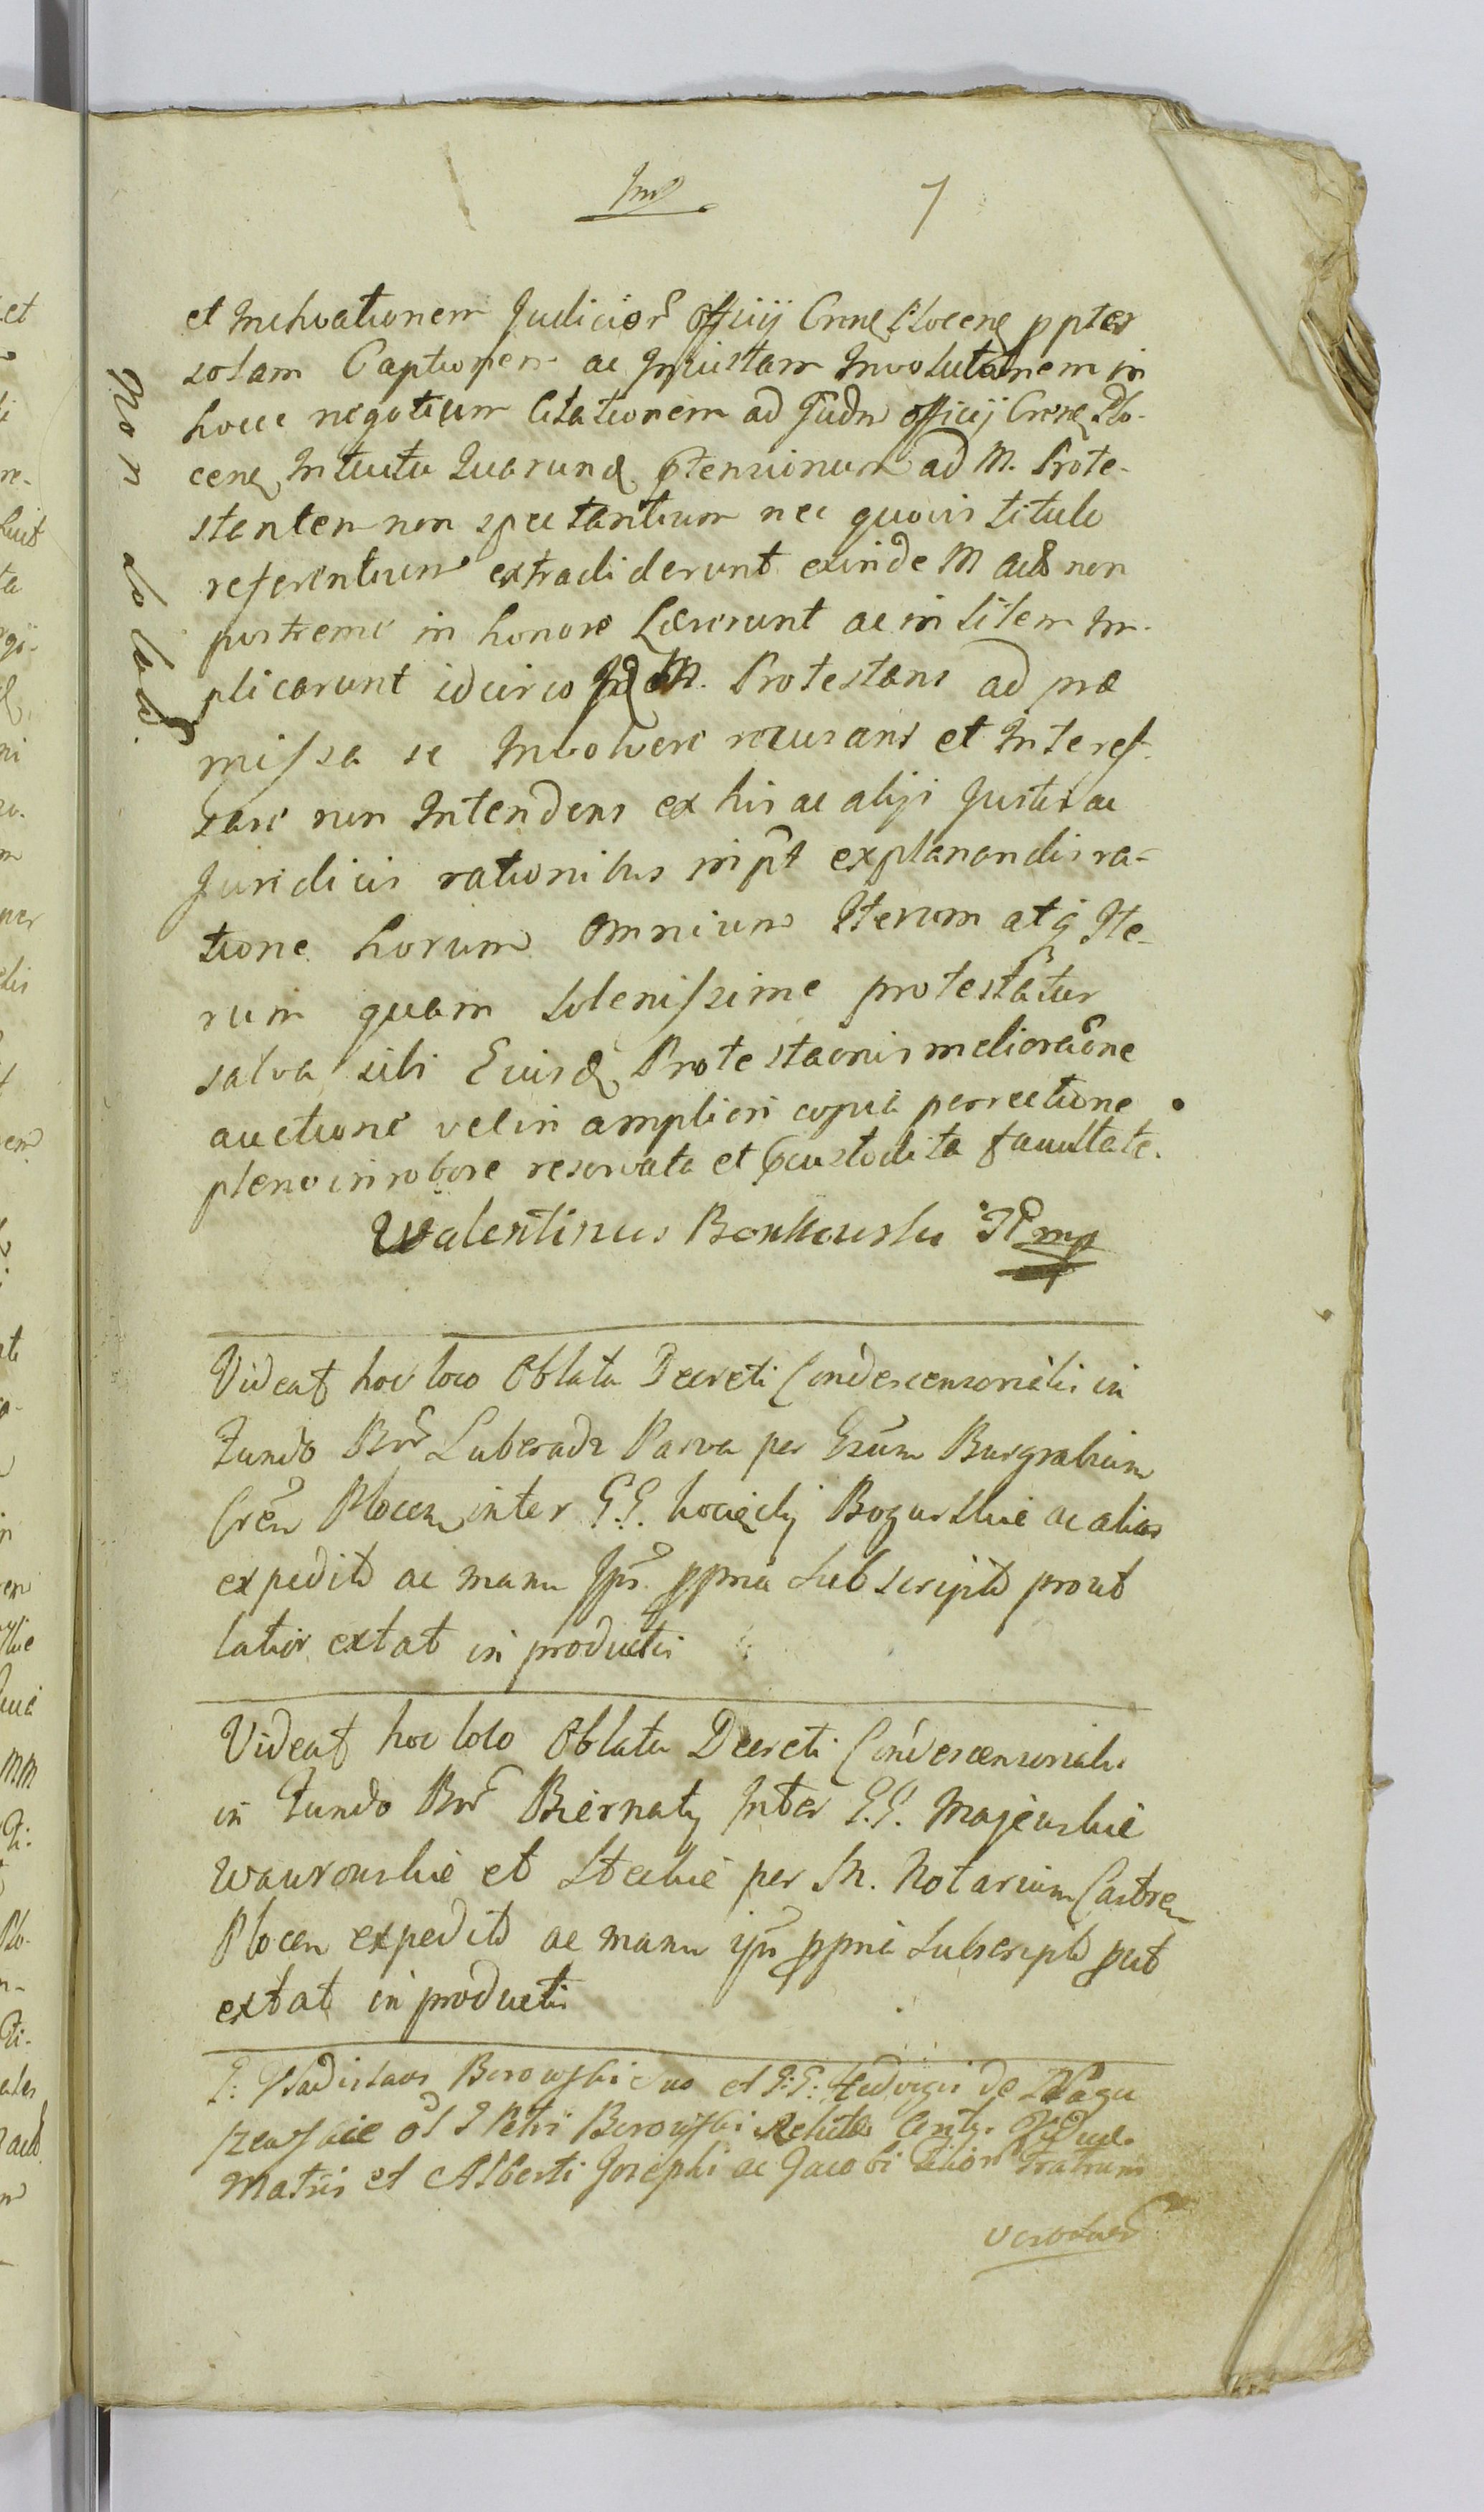 7
et Inchoationem Judicior Officij Crens Plocens ppter
solam Captionem ac Injustam Involutionem in
hocce negotium Citationem ad Judm officij Crens Plo-
cens Intuitu Quarund Ptensionum ad M. Prote-
stantem non spectantium nec quovis titulo
referentium extradiderunt exinde M act non
postreme in honore Læserunt ac in litem Im-
plicarunt idcirco M. Protestans ad præ
missa se Involvere recusans et Interes-
sare non Intendens ex his ac alijs Justis ac
Juridicis rationibus explanandis ra-
tione horum omnium Iterum atq Ite-
rum quam solenissime protestatur
salva sibi Eiusd Protestaonis melioraone
auctione vel in ampliori copia porrectione
pleno in robore reservata et Pcustodita facultate.
Valentinus Bonkowski mp
Non dolet
Videat hoc loco Oblata Decreti Condescensorialis in
Fundo Bnr Luberadz Parva per Gsum Burgrabium
Cren Plocen inter G.G. Bogurskie ac alios
expedito ac manu Ipr ppria Subscripto prout
latior extat in productis
Videat hoc loco Oblata Decreti Condescensorialis
in Fundo Bnr Biernaty Inter G.G. Majewskie
Wawrowskie et Steckie per M. Notarium Castren
Plocen expedito ac manu ipr ppria Subscripto put
extat in productis
G: Vladislaus Borowski suo et G:G: Hedvigis de
ol G Petri Borowski Relictæ Viduæ
Matris et Alberti Josephi ac Jacobi filior Fratrum